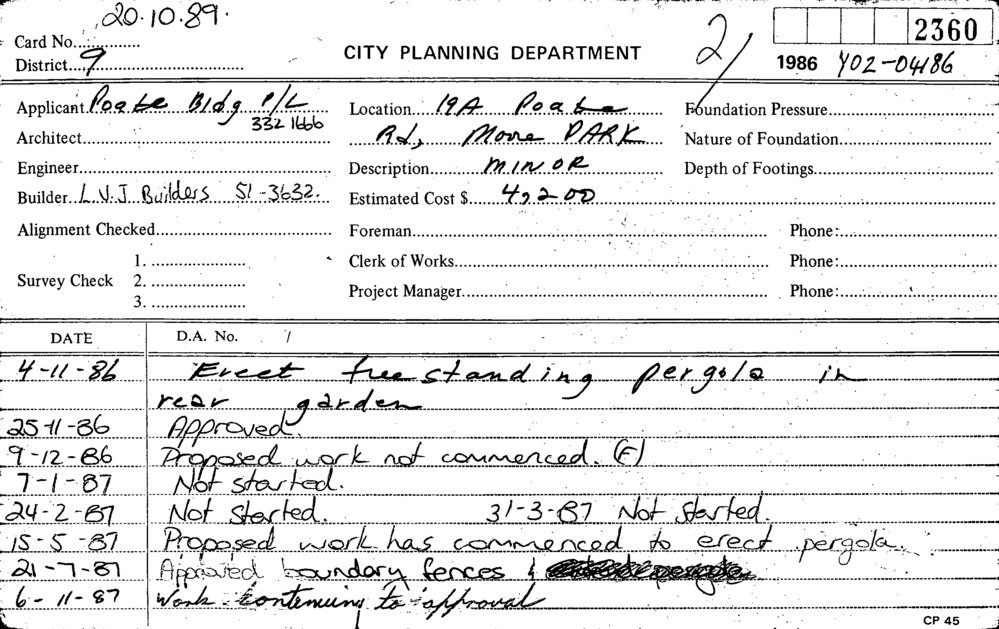 20.10.89.
Card No.
District 9
CITY PLANNING DEPARTMENT
2/
2360
1986 Y02-04186
Applicant Poate Bldg P/L
332 1666
Location 19A Poate
Rd, Moore PARK
Foundation Pressure
Architect
Nature of Foundation
Engineer
Description MINOR
Depth of Footings
Builder L.V.J Builders 51-3632.
Estimated Cost $ 4,200
Alignment Checked
Foreman
Phone:
Survey Check 1.
2.
3.
Clerk of Works
Phone:
Project Manager
Phone:
DATE D.A. No. /
4-11-86 Erect freestanding pergola in
rear garden
25-11-86 Approved.
9-12-86 Proposed work not commenced. (F)
7-1-87 Not started.
24-2-87 Not Started. 31-3-87 Not Started.
15-5-87 Proposed work has commenced to erect pergola.
21-7-87 Approved boundary fences &
6-11-87 Work contenuing to approval
CP 45